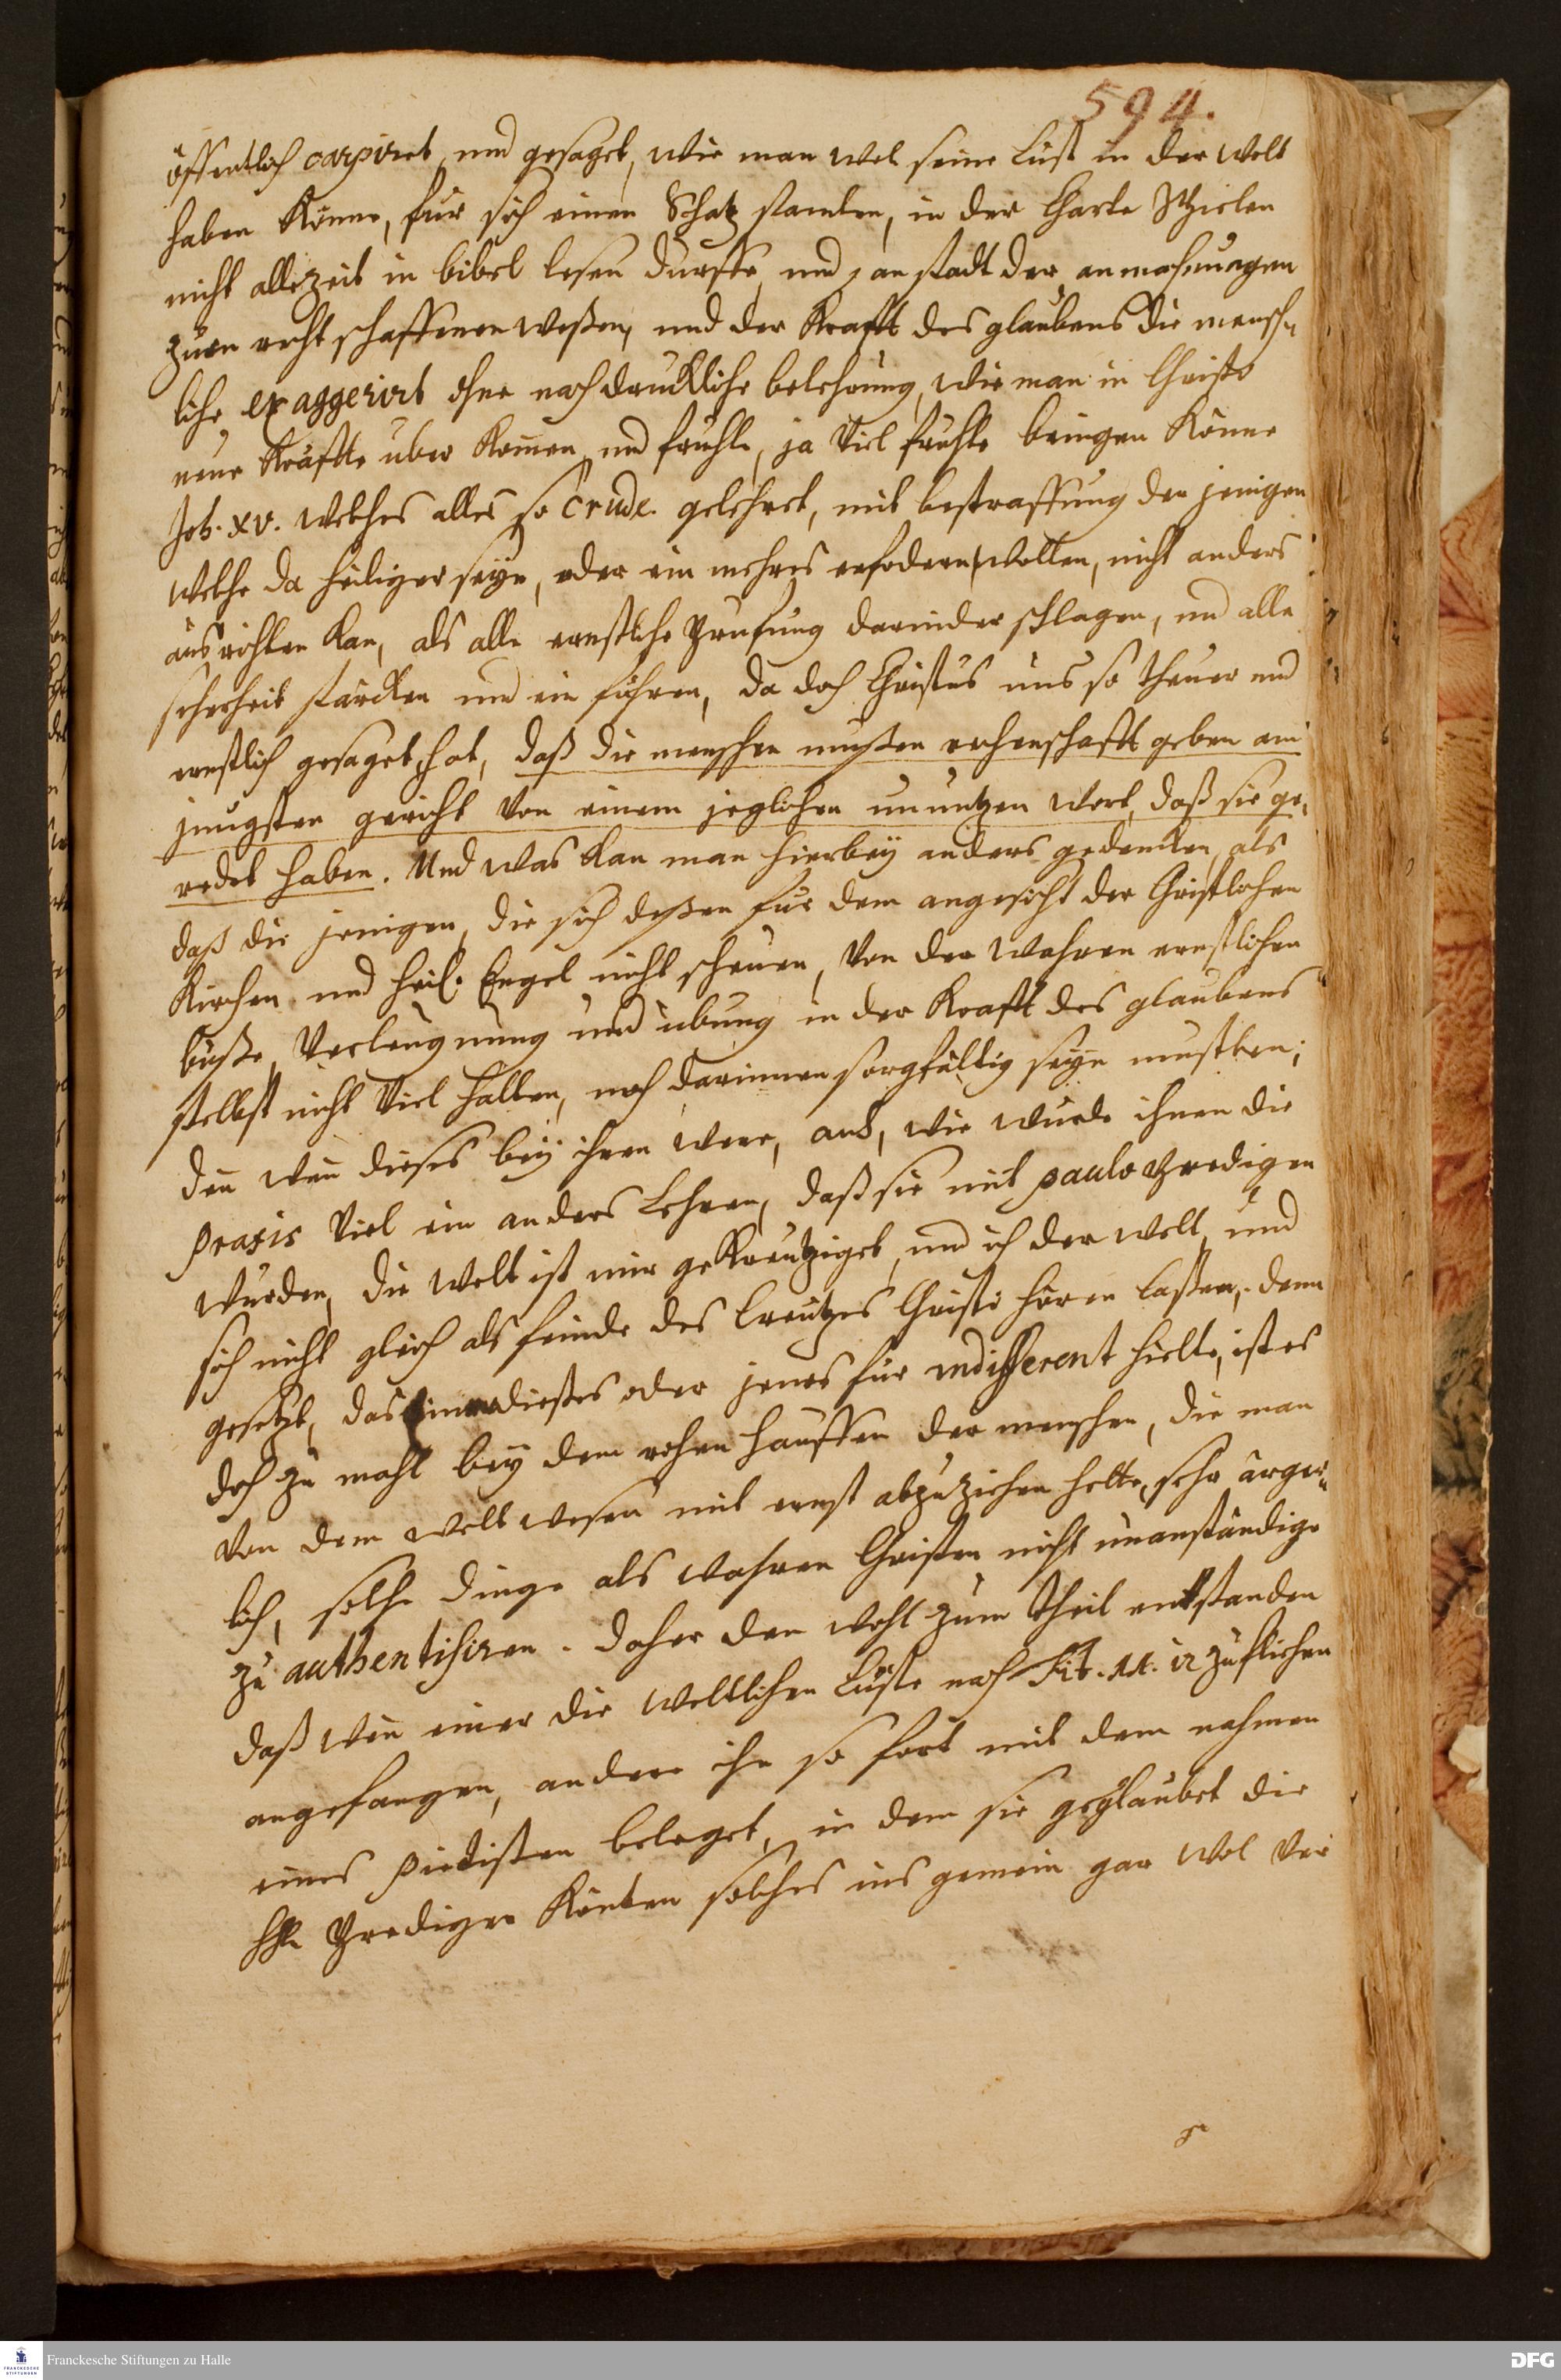 594.
öffentlich carpiret, und gesaget, wie man wol seine Lust in der welt
haben könne, für sich einen Schatz samlen, in der Charte Spielen
nicht allezeit in bibel lesen durffe, und, anstadt der anmahnungen
zum rechtschaffenen weßen, und der Krafft des glaubens die mensch-
liche exaggerirt ohne nachdruckliche belehrung, wie man in Christo
neue Kräffte uber kommen, und fruchte, ja viel fruchte bringen könne
Joh. XV. welches alles so crude gelehret, mit bestraffung der jenigen
welche da heiliger seyn, oder ein mehres erfodern wolten, nicht anders
ausrichten kan, als alle ernstliche Prufung darnider schlagen, und alle
sicherheit stärcken und ein führen, da doch Christus uns so theuer und
ernstlich gesaget hat, daß die menschen mußen rechenschafft geben am
jungsten gericht von einem jeglichen ununtzen wort, daß sie ge-
redet haben. Und was kan man hierbey anders gedencken, als
daß die jenigen, die sich deßen fur dem angesicht der Christlichen
Kirchen und heil. Engel nicht scheuen, von der wahren ernstlichen
buße, Verleugnung und übung in der Krafft des glaubens
selbst nicht viel halten, noch darinnen sorgfältig seyn mustten;
den wen dieses bey ihren were, ach, wie wurde ihnen die
praxis viel ein anders Lehren, daß sie mit paulo Predigen
wurden, die welt ist mir gekreutziget, und ich der welt, und
sich nicht gleich als feinde des Creutzes Christi hören laßen, denn
gesetzt, das einer dießes oder jenes für indifferent hielte, ist es
doch zu mahl bey dem rohen hauffen der menschen, die man
von dem welt wesen mit ernst abzuziehen hette, sehr ärger-
lich, solche dinge als wahren Christen nicht unanständige
zu authentisiren. Daher den wohl zum theil entstanden
daß wen einer die weltlichen Lüste nach Tit. II. 12 zu fliehen
angefangen, andere ihn so fort mit dem nahmen
eines pietisten beleget, in dem sie geglaubet die
HHn Prediger könten solches ins gemein gar wol ver